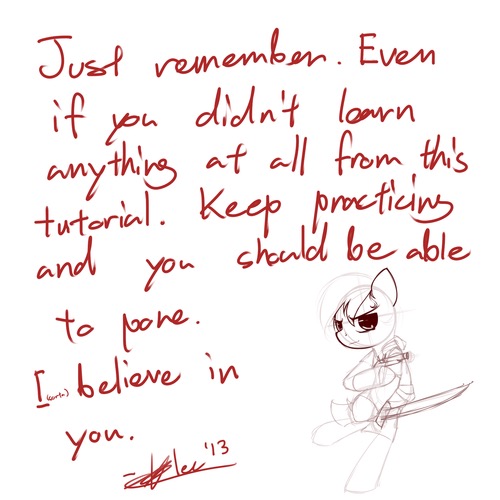 Just remember. Even
if you didn't learn
anything at all from this
tutorial. Keep practicing
and you should be able
to pone.
I believe in
you.
'13